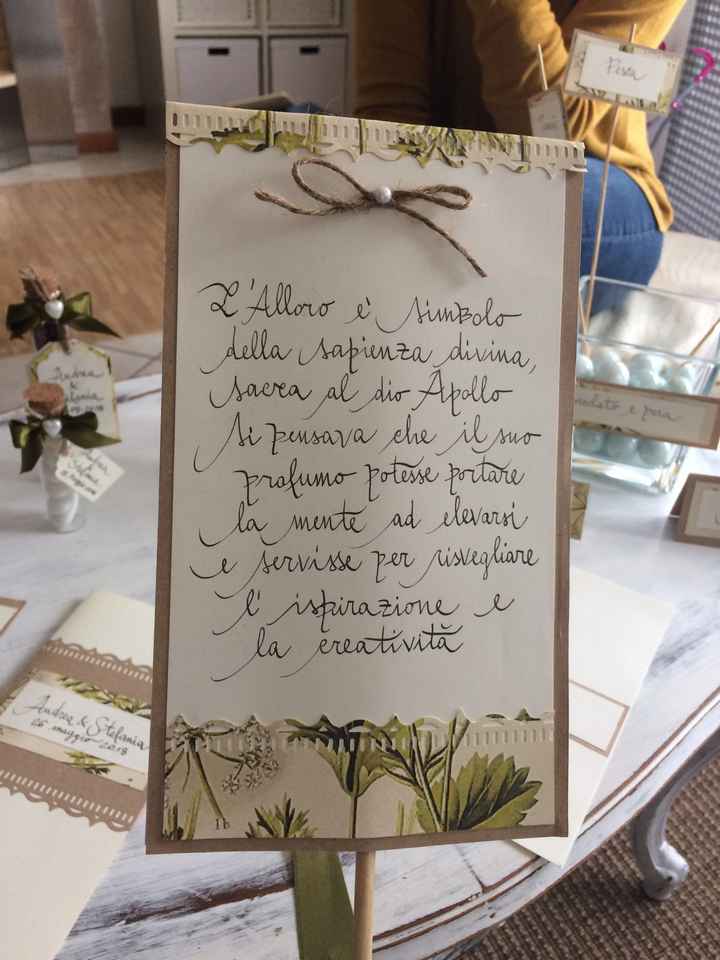 L'Alloro è simbolo
della sapienza divina,
sacra al dio Apollo
Si pensava che il suo
profumo potesse portare
la mente ad elevarsi
e servisse per risvegliare
l'ispirazione e
la creatività
16
Pesca
e pera
Andrea
&
Andrea & Stefania
26 maggio 2018